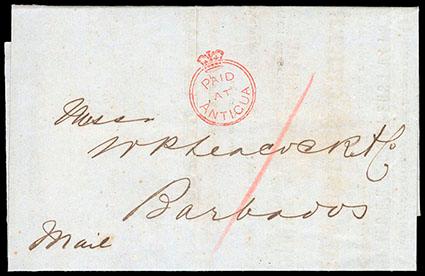 PAID
AT
ANTIGUA
Messrs
& Co
Barbados
Mail